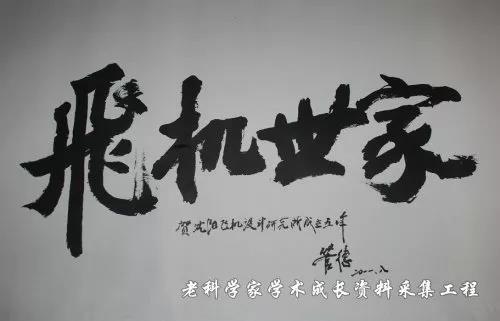 飛机世家
贺沈阳飞机设计研究所成立五十年
管德
二〇一一.八
老科学家学术成长资料采集工程